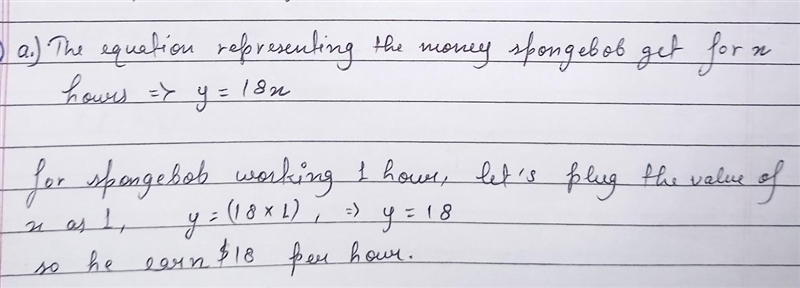 a.) The equation representing the money spongebob get for x
hours => y = 18x
for spongebob working 1 hour, let's plug the value of
x as 1, y = (18 × 1), => y = 18
so he earn $18 per hour.